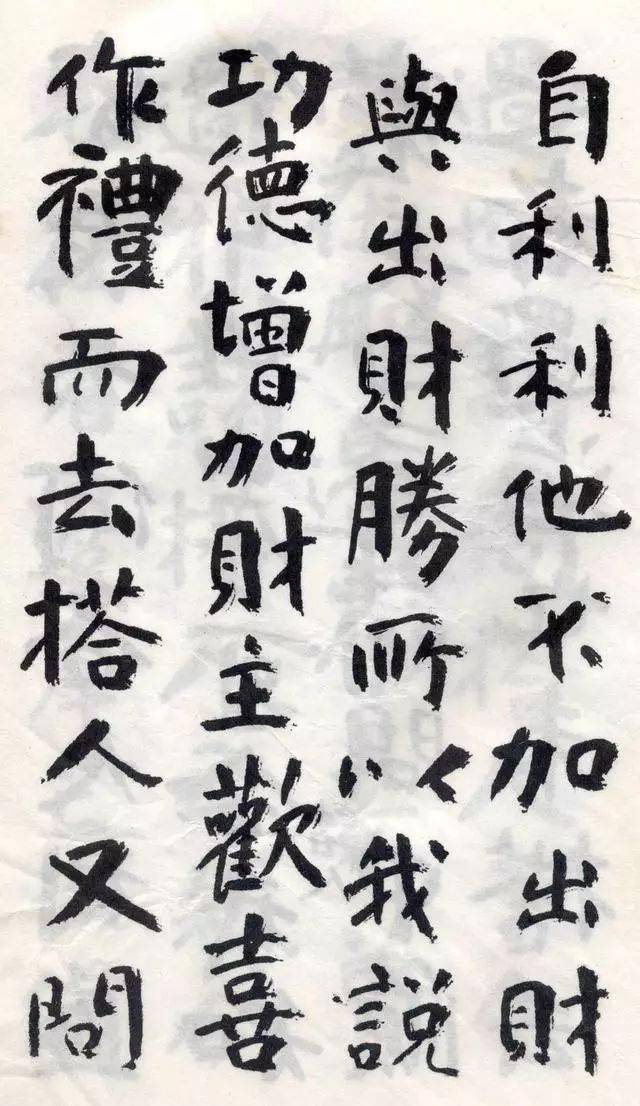 自利利他不加出財
與出財勝所以我說
功德增加財主歡喜
作禮而去搭人又問